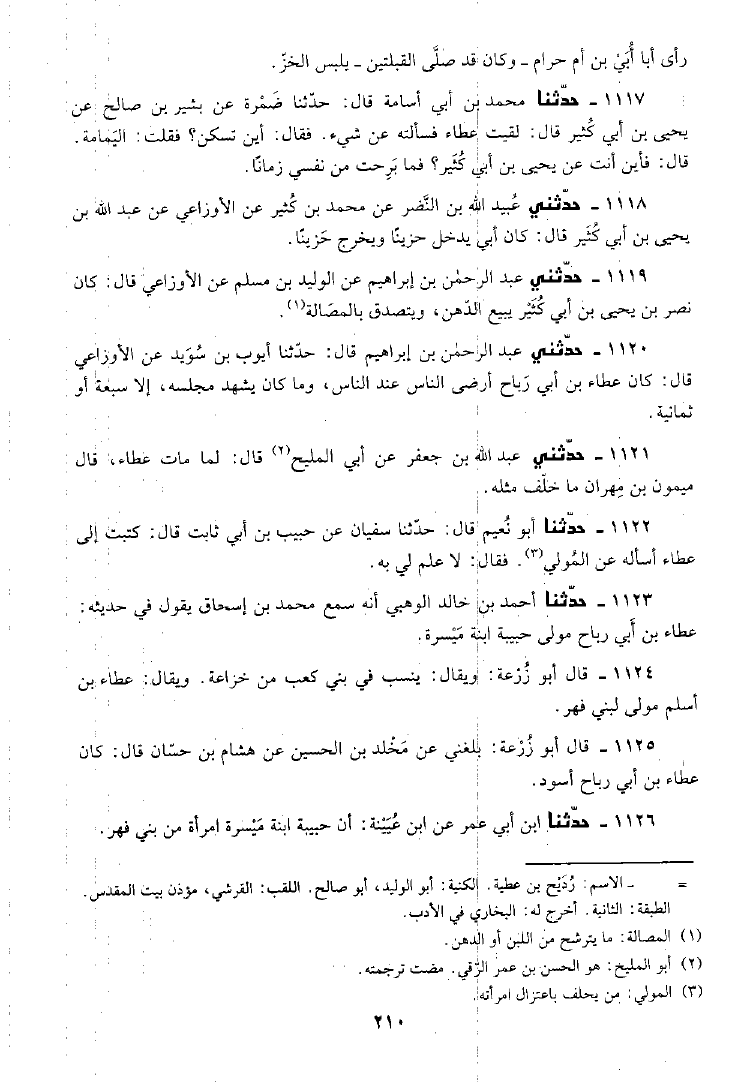 رأى أبا أُبَيْ بن أم حرام - وكان قد صلَّى القبلتين - يلبس الخزّ.
١١١٧ - حدّثنا محمد بن أبي أسامة قال: حدّثنا ضَمْرة عن بشير بن صالح عن
يحيى بن أبي كُثير قال: لقيت عطاء فسألته عن شيء. فقال: أين تسكن؟ فقلت: اليَمامة.
قال: فأين أنت عن يحيى بن أبي كُثَير؟ فما بَرِحت من نفسي زمانًا.
١١١٨ - حدّثني عُبيد الله بن النَّضر عن محمد بن كُثير عن الأوزاعي عن عبد الله بن
يحيى بن أبي كُثَير قال: كان أبي يدخل حزينًا ويخرج حَزينًا.
١١١٩ - حدّثني عبد الرحمٰن بن إبراهيم عن الوليد بن مسلم عن الأوزاعي قال: كان
نصر بن يحيى بن أبي كُثَيْر يبيع الدّهن، ويتصدق بالمصَالة(١).
١١٢٠ - حدّثني عبد الرحمٰن بن إبراهيم قال: حدّثنا أيوب بن سُوَيد عن الأوزاعي
قال: كان عطاء بن أبي رَباح أرضى الناس عند الناس، وما كان يشهد مجلسه، إلا سبعة أو
ثمانية.
١١٢١ - حدّثني عبد الله بن جعفر عن أبي المليح(٢) قال: لما مات عطاء، قال
ميمون بن مِهران ما خلّف مثله.
١١٢٢ - حدّثنا أبو نُعيم قال: حدّثنا سفيان عن حبيب بن أبي ثابت قال: كتبت إلى
عطاء أسأله عن المُولي(٣). فقال: لا علم لي به.
١١٢٣ - حدّثنا أحمد بن خالد الوهبي أنه سمع محمد بن إسحاق يقول في حديثه:
عطاء بن أَبي رباح مولى حبيبة ابنة مَيْسرة.
١١٢٤ - قال أبو زُرْعة: ويقال: ينسب في بني كعب من خزاعة. ويقال: عطاء بن
أسلم مولى لبني فهر.
١١٢٥ - قال أبو زُرْعة: بلغني عن مَخْلد بن الحسين عن هشام بن حسّان قال: كان
عطاء بن أبي رباح أسود.
١١٢٦ - حدّثنا ابن أبي عمر عن ابن عُيَيْنة: أن حبيبة ابنة مَيْسرة امرأة من بني فهر.
= - الاسم: رُدَيْح بن عطية. الكنية: أبو الوليد، أبو صالح. اللقب: القرشي، مؤذن بيت المقدس.
الطبقة: الثانية. أخرج له: البخاري في الأدب.
(١) المصالة: ما يترشح من اللبن أو الدهن.
(٢) أبو المليح: هو الحسن بن عمر الرّقي. مضت ترجمته.
(٣) المولي: من يحلف باعتزال امرأته.
٢١٠